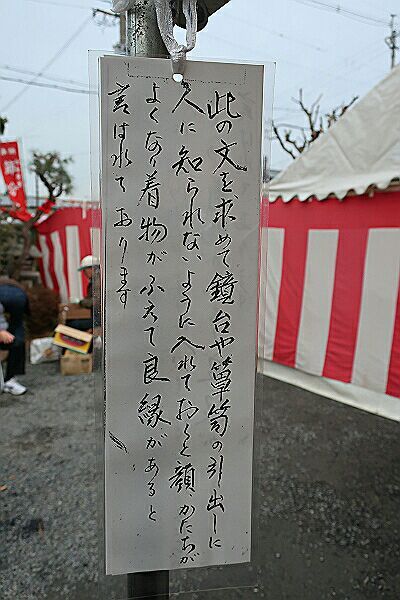 此の文を求めて鏡台や簞笥の引出しに
人に知られないように入れておくと顔、かたちが
よくなり着物がふえて良縁があると
言はれております